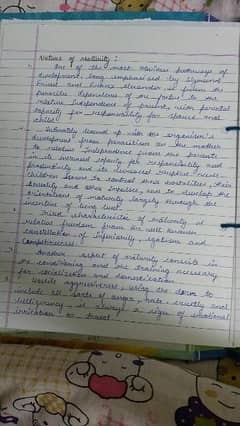 Nature of maturity :
One of the most obvious pathways of
development, long emphasised by Sigmund
Freud and Franz Alexander is from the
parasitic dependence of the foetus to the
relative independence of parent, with parental
capacity for responsibility for spouse and
child.
Intimately bound up with the organism's
development from parasitism on the mother
to relative independence from the parents
is its increased capacity for responsibility and
productivity and its decreased receptive needs.
children learn to control their hostilities, their
sexuality and other impulses, and to develop the
orientations of maturity largely through the
incentive of being loved.
Third characteristic of maturity is
relative freedom from the well known
constellation of inferiority, egotism and
competitiveness
Another aspect of maturity consists in
the conditioning and the training necessary
for socialization and domestication.
Hostile aggressiveness, using the term to
include all sorts of anger, hate, cruelty and
belligerency is always a sign of emotional
irritation or threat